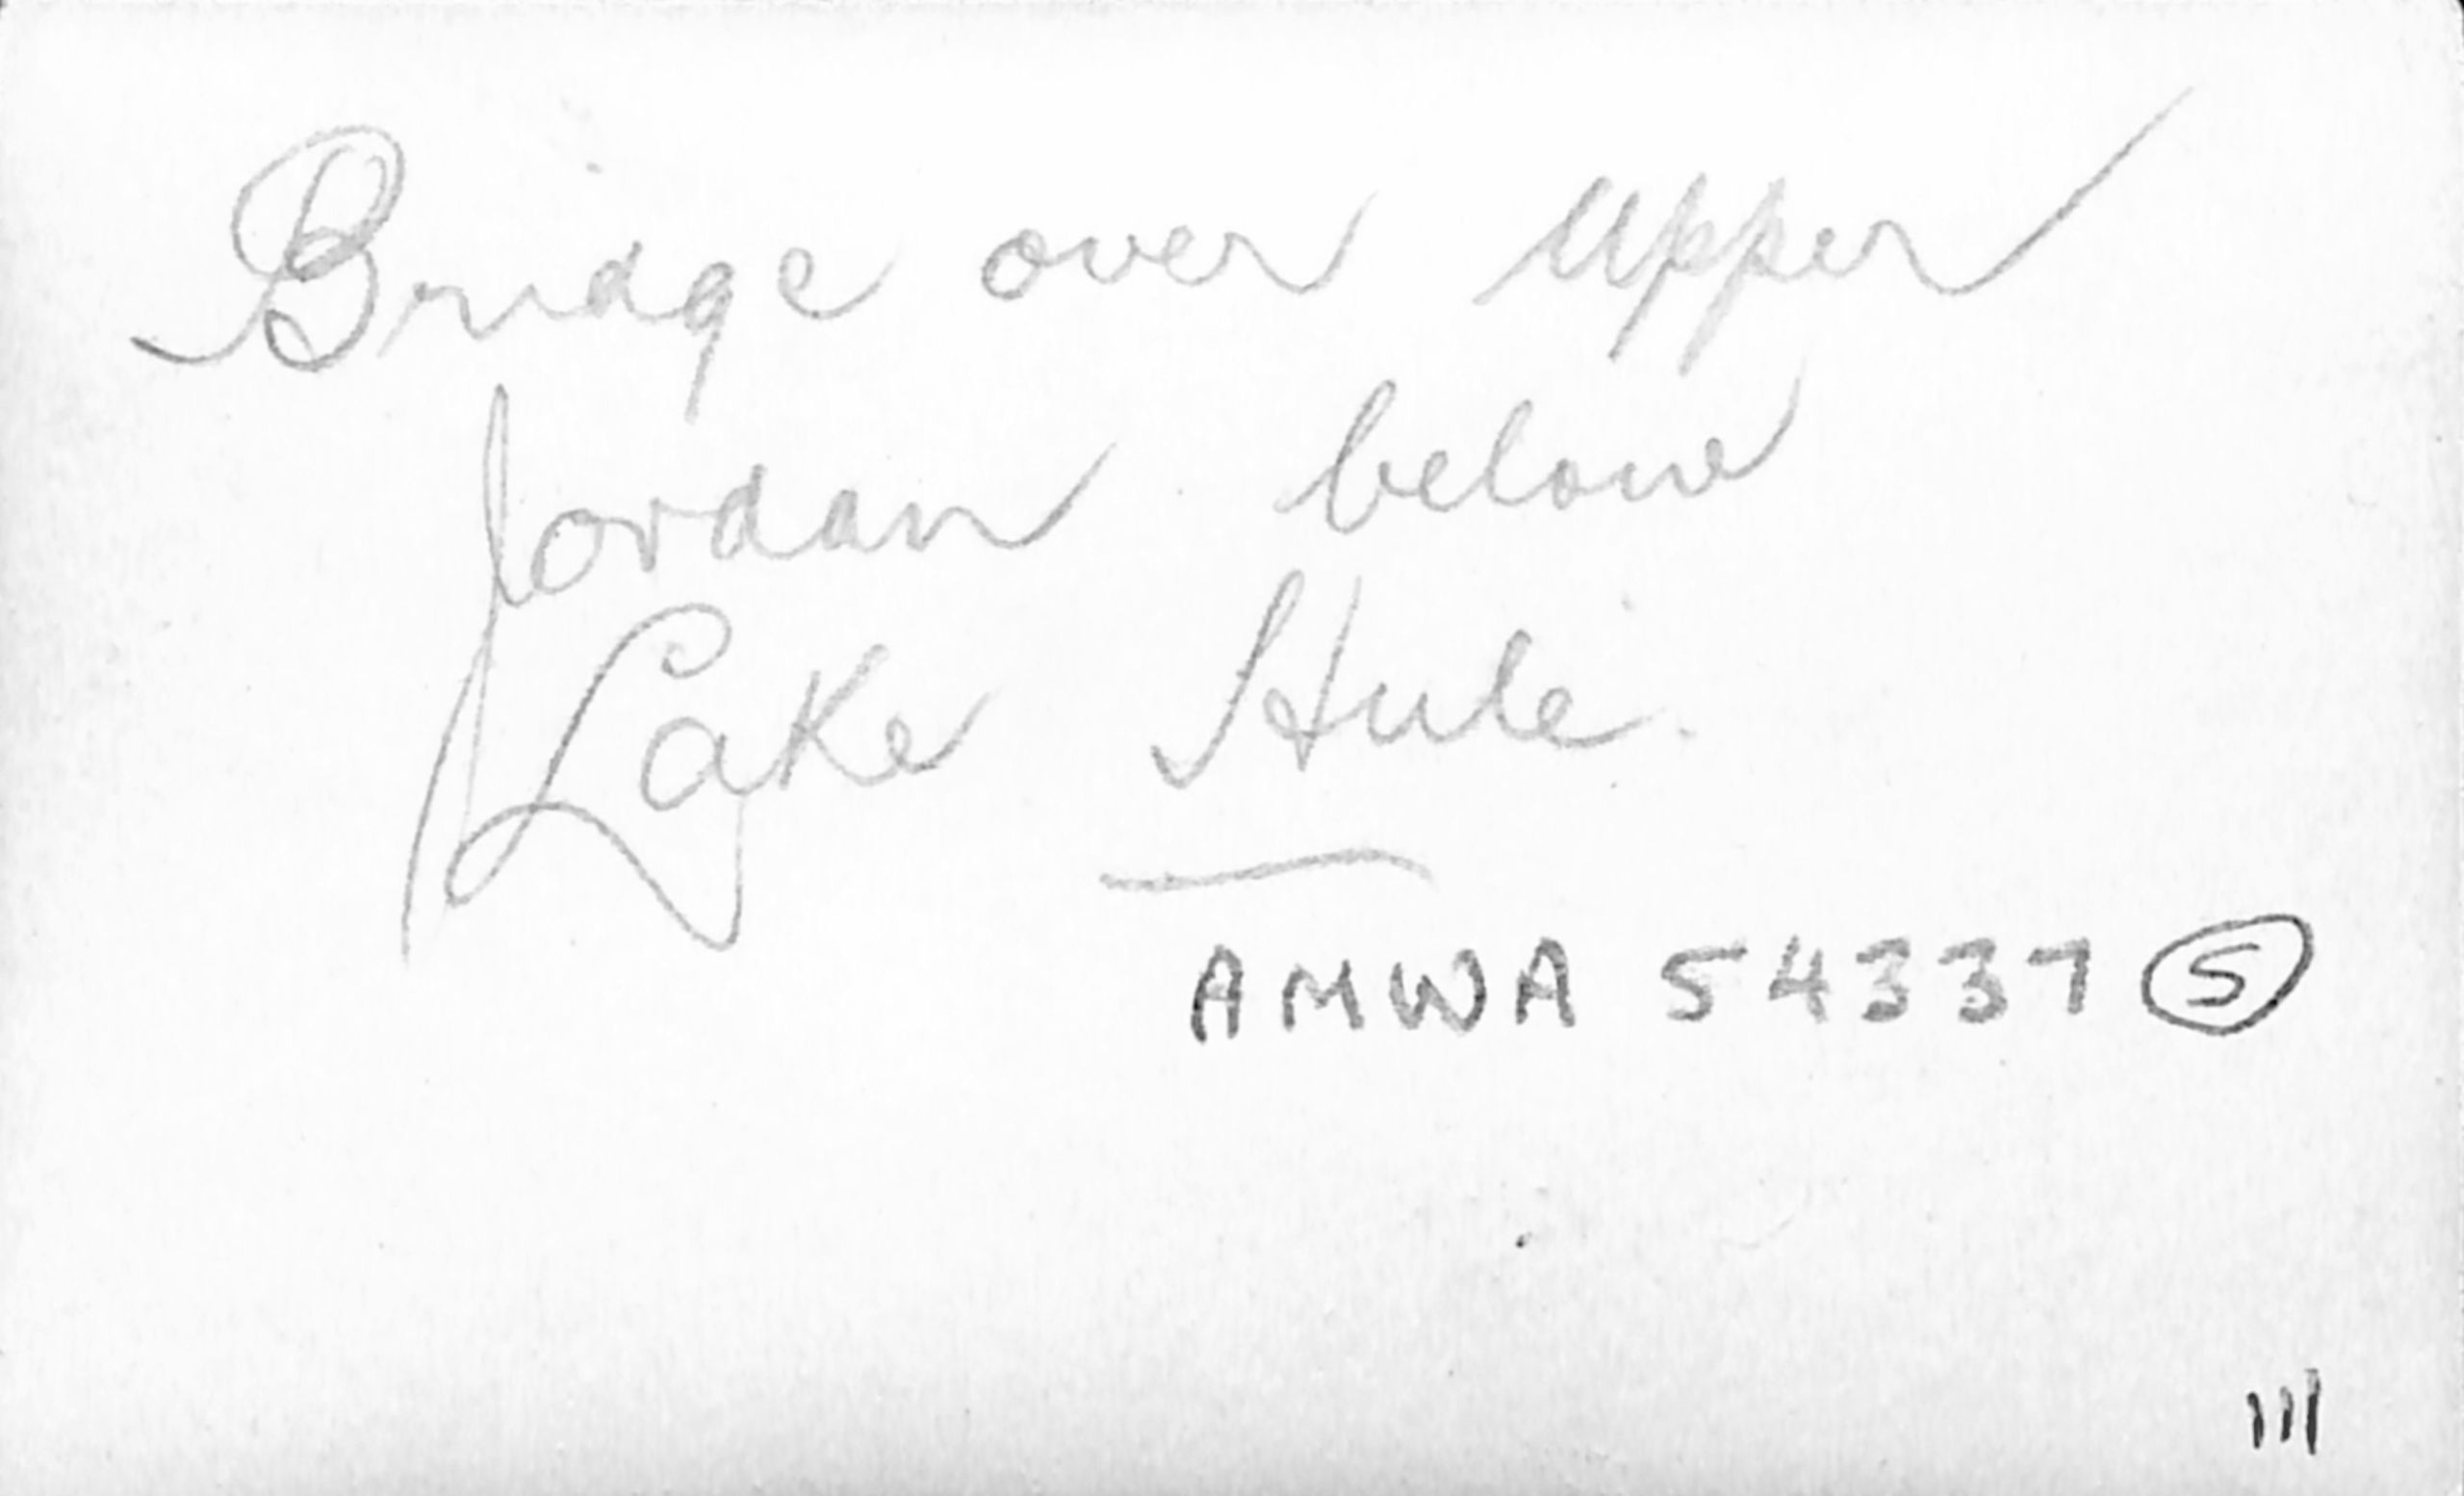 Bridge over Upper
Jordan below
Lake Hule.
AMWA 54337 (S)
111